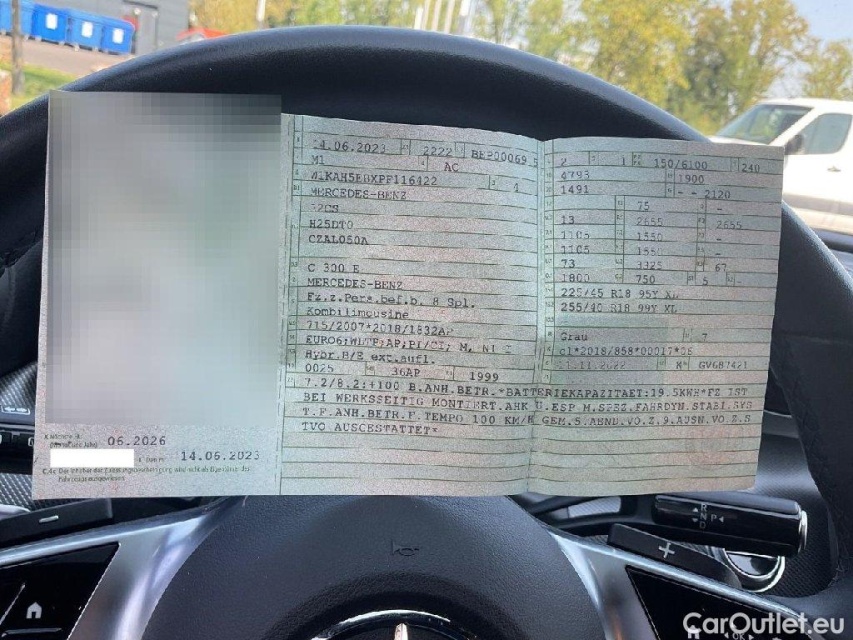 14.06.2023 2222 BEP00069 5
M1 AC
W1KAH5EBXPF116422 4
MERCEDES-BENZ
H25DT0
CZAL050A
C 300 E
MERCEDES-BENZ
Fz.z.Pers.bef.b. 8 Spl.
Kombilimousine
715/2007*2018/1832AP
EURO6;WLTP;AP;PI/CI; M, N1 I
Hybr.B/E ext.aufl.
0025 36AP 1999
2 1 150/6100 240
4793 1900
1491 - - 2120
75 -
13 2655 2655
1105 1550 -
1105 1550 -
73 3325 67
1800 750 5 -
225/45 R18 95Y XL
255/40 R18 99Y XL
Grau 7
e1*2018/858*00017*06
21.11.2022 K GV687421
7.2/8.2:+100 B.ANH.BETR.*BATTERIEKAPAZITAET:19.5KWH*FZ IST
BEI WERKSSEITIG MONTIERT.AHK U.ESP M.SPEZ.FAHRDYN.STABI.SYS
T.F.ANH.BETR.F.TEMPO 100 KM/H GEM.5.ABND.VO.Z.9.AUSN.VO.Z.S
TVO AUSGESTATTET*
06.2026
14.06.2023
R
N
D
P
+
CarOutlet.eu